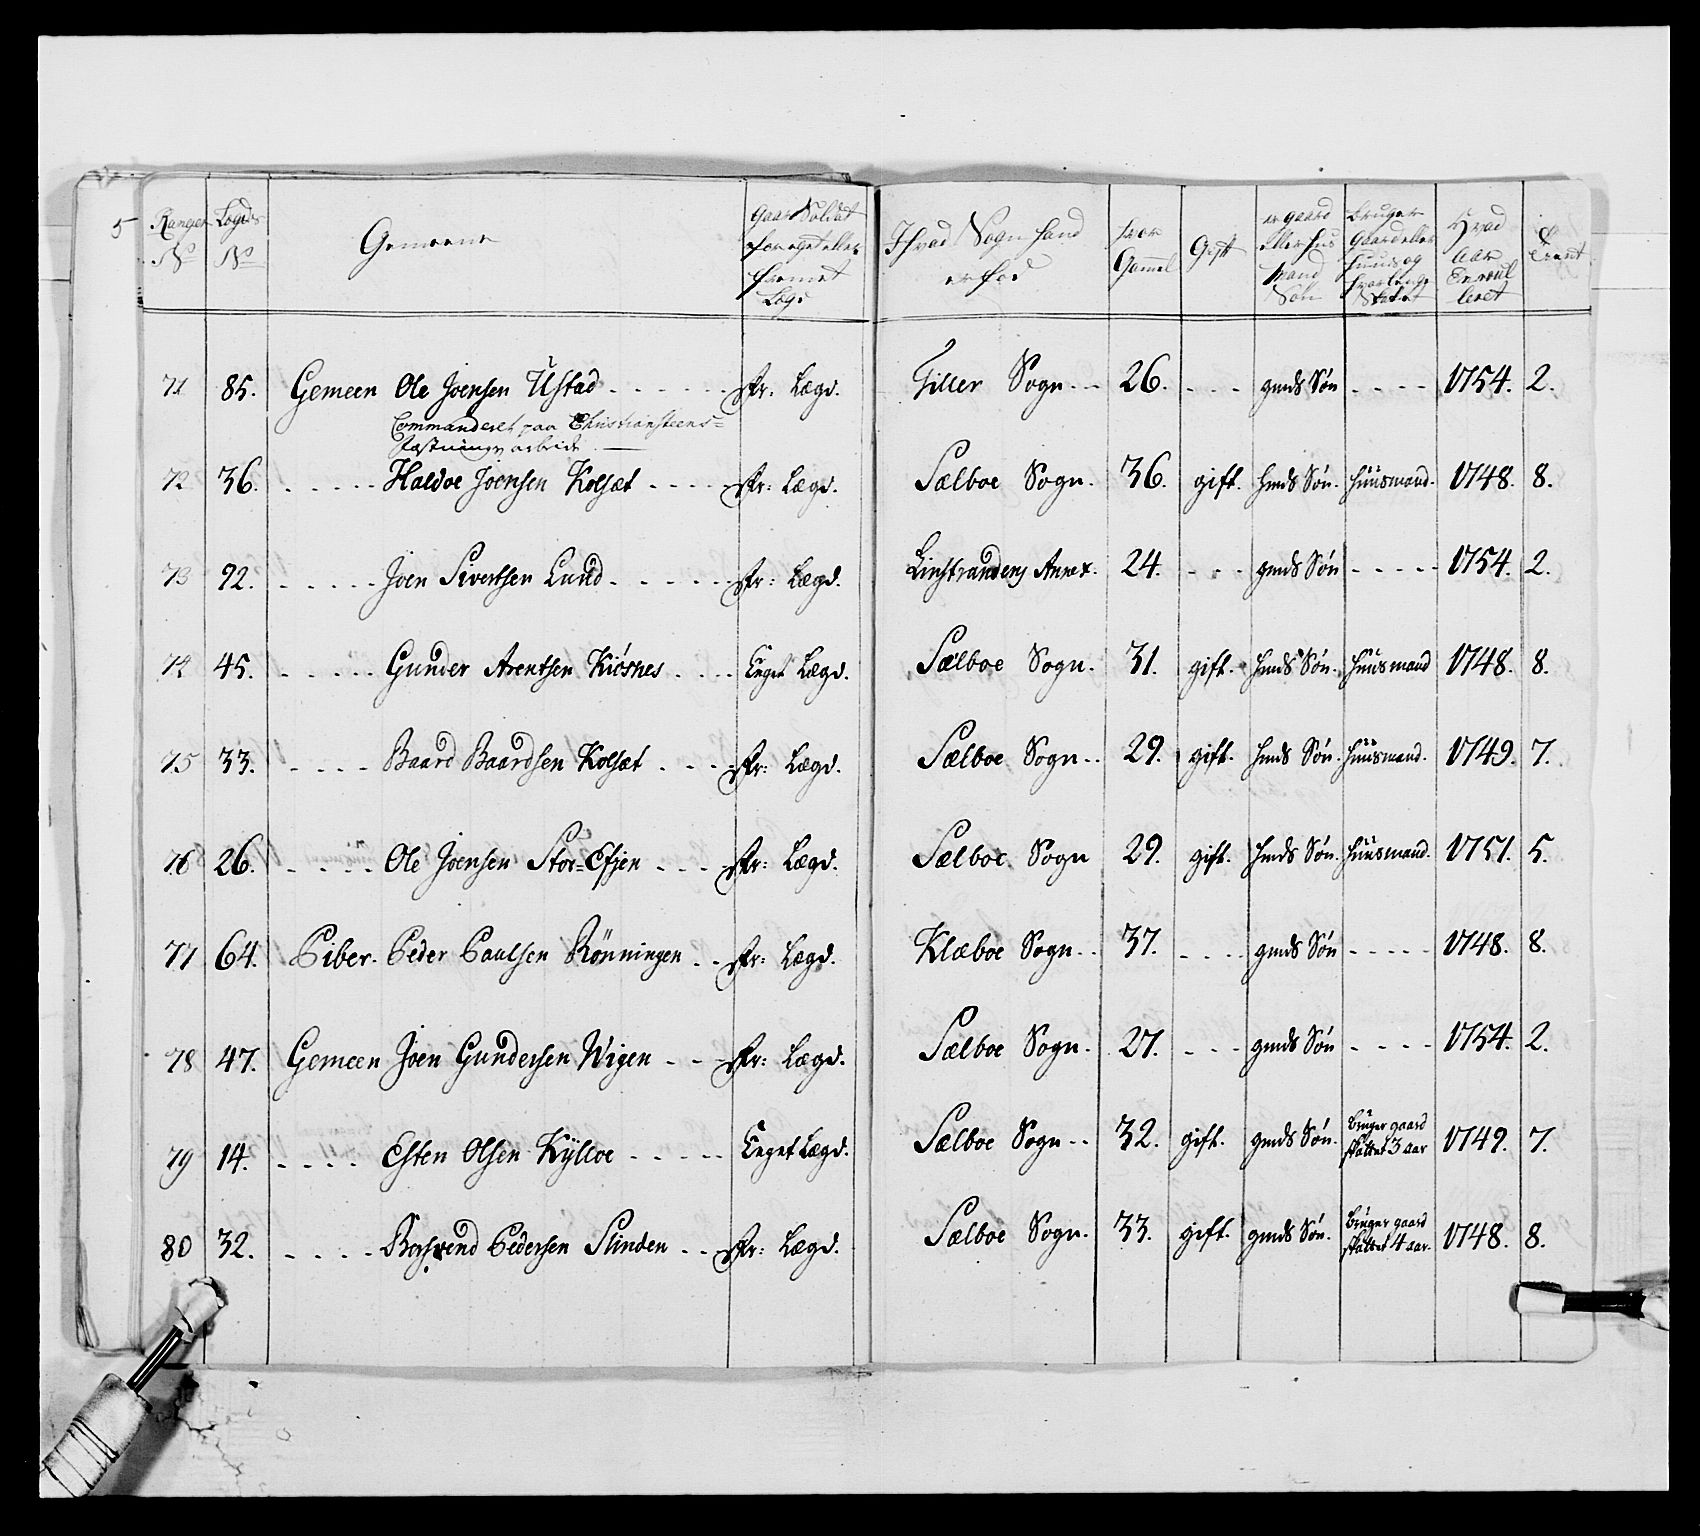 5
Ranger No | Lægds No | Gemeene | Gaar Soldat for eget eller fremet Lægd | I hvad Sogn hand er fød | hvor Gammel | Gift | er gaard eller hus mand Søn | bruger Gaard eller huus og hvor lenge | Hvad Aar Enroulleret | tient
71 | 85. | Gemeen Ole Joensen Ustad | fr: Lægd. | Tiller Sogn | 26. | - - - | gmds Søn | - - - - | 1754. | 2.
Commanderet paa Christiansteens=
Fæstnings arbeide
72 | 36. | - - - - - Haldoe Joensen Kolsæt | fr: Lægd. | Sælboe Sogn. | 36. | gift. | hmds Søn. | huusmand. | 1748. | 8.
73 | 92. | - - - - - Joen Sivertsen Lund | fr: Lægd. | Linstrandens Annex. | 24. | - - - | gmds Søn | - - - - - | 1754. | 2.
74 | 45. | - - - - - Gunder Arentsen Kiösnes | Eeget Lægd. | Sælboe Sogn. | 31. | gift. | hmds Søn. | huusmand | 1748. | 8.
75 | 33. | - - - - Baard Baardsen Kolsæt | fr: Lægd. | Sælboe Sogn | 29. | gift. | hmds Søn. | huusmand. | 1749. | 7.
76 | 26. | - - - - Ole Joensen Stor=Efjen | fr: Lægd. | Sælboe Sogn | 29. | gift. | hmds Søn. | huusmand. | 1751. | 5.
77 | 64. | Piber. Peder Paulsen Rönningen | fr: Lægd. | Klæboe Sogn | 37. | - - - - | gmds Søn | - - - - - | 1748. | 8.
78 | 47. | Gemeen Joen Gundersen Wigen | fr: Lægd. | Sælboe Sogn. | 27. | - - - | gmds Søn | - - - - | 1754. | 2.
79 | 14. | - - - - Esten Olsen Kÿlloe | Eeget Lægd. | Sælboe Sogn | 32. | gift. | gmds Søn. | bruger gaard skattet 3 aar | 1749. | 7.
80 | 32. | - - - - Pedersen Slinden | fr: Lægd. | Sælboe Sogn. | 33. | gift. | gmds Søn. | bruger gaard skattet 4 aar. | 1748. | 8.